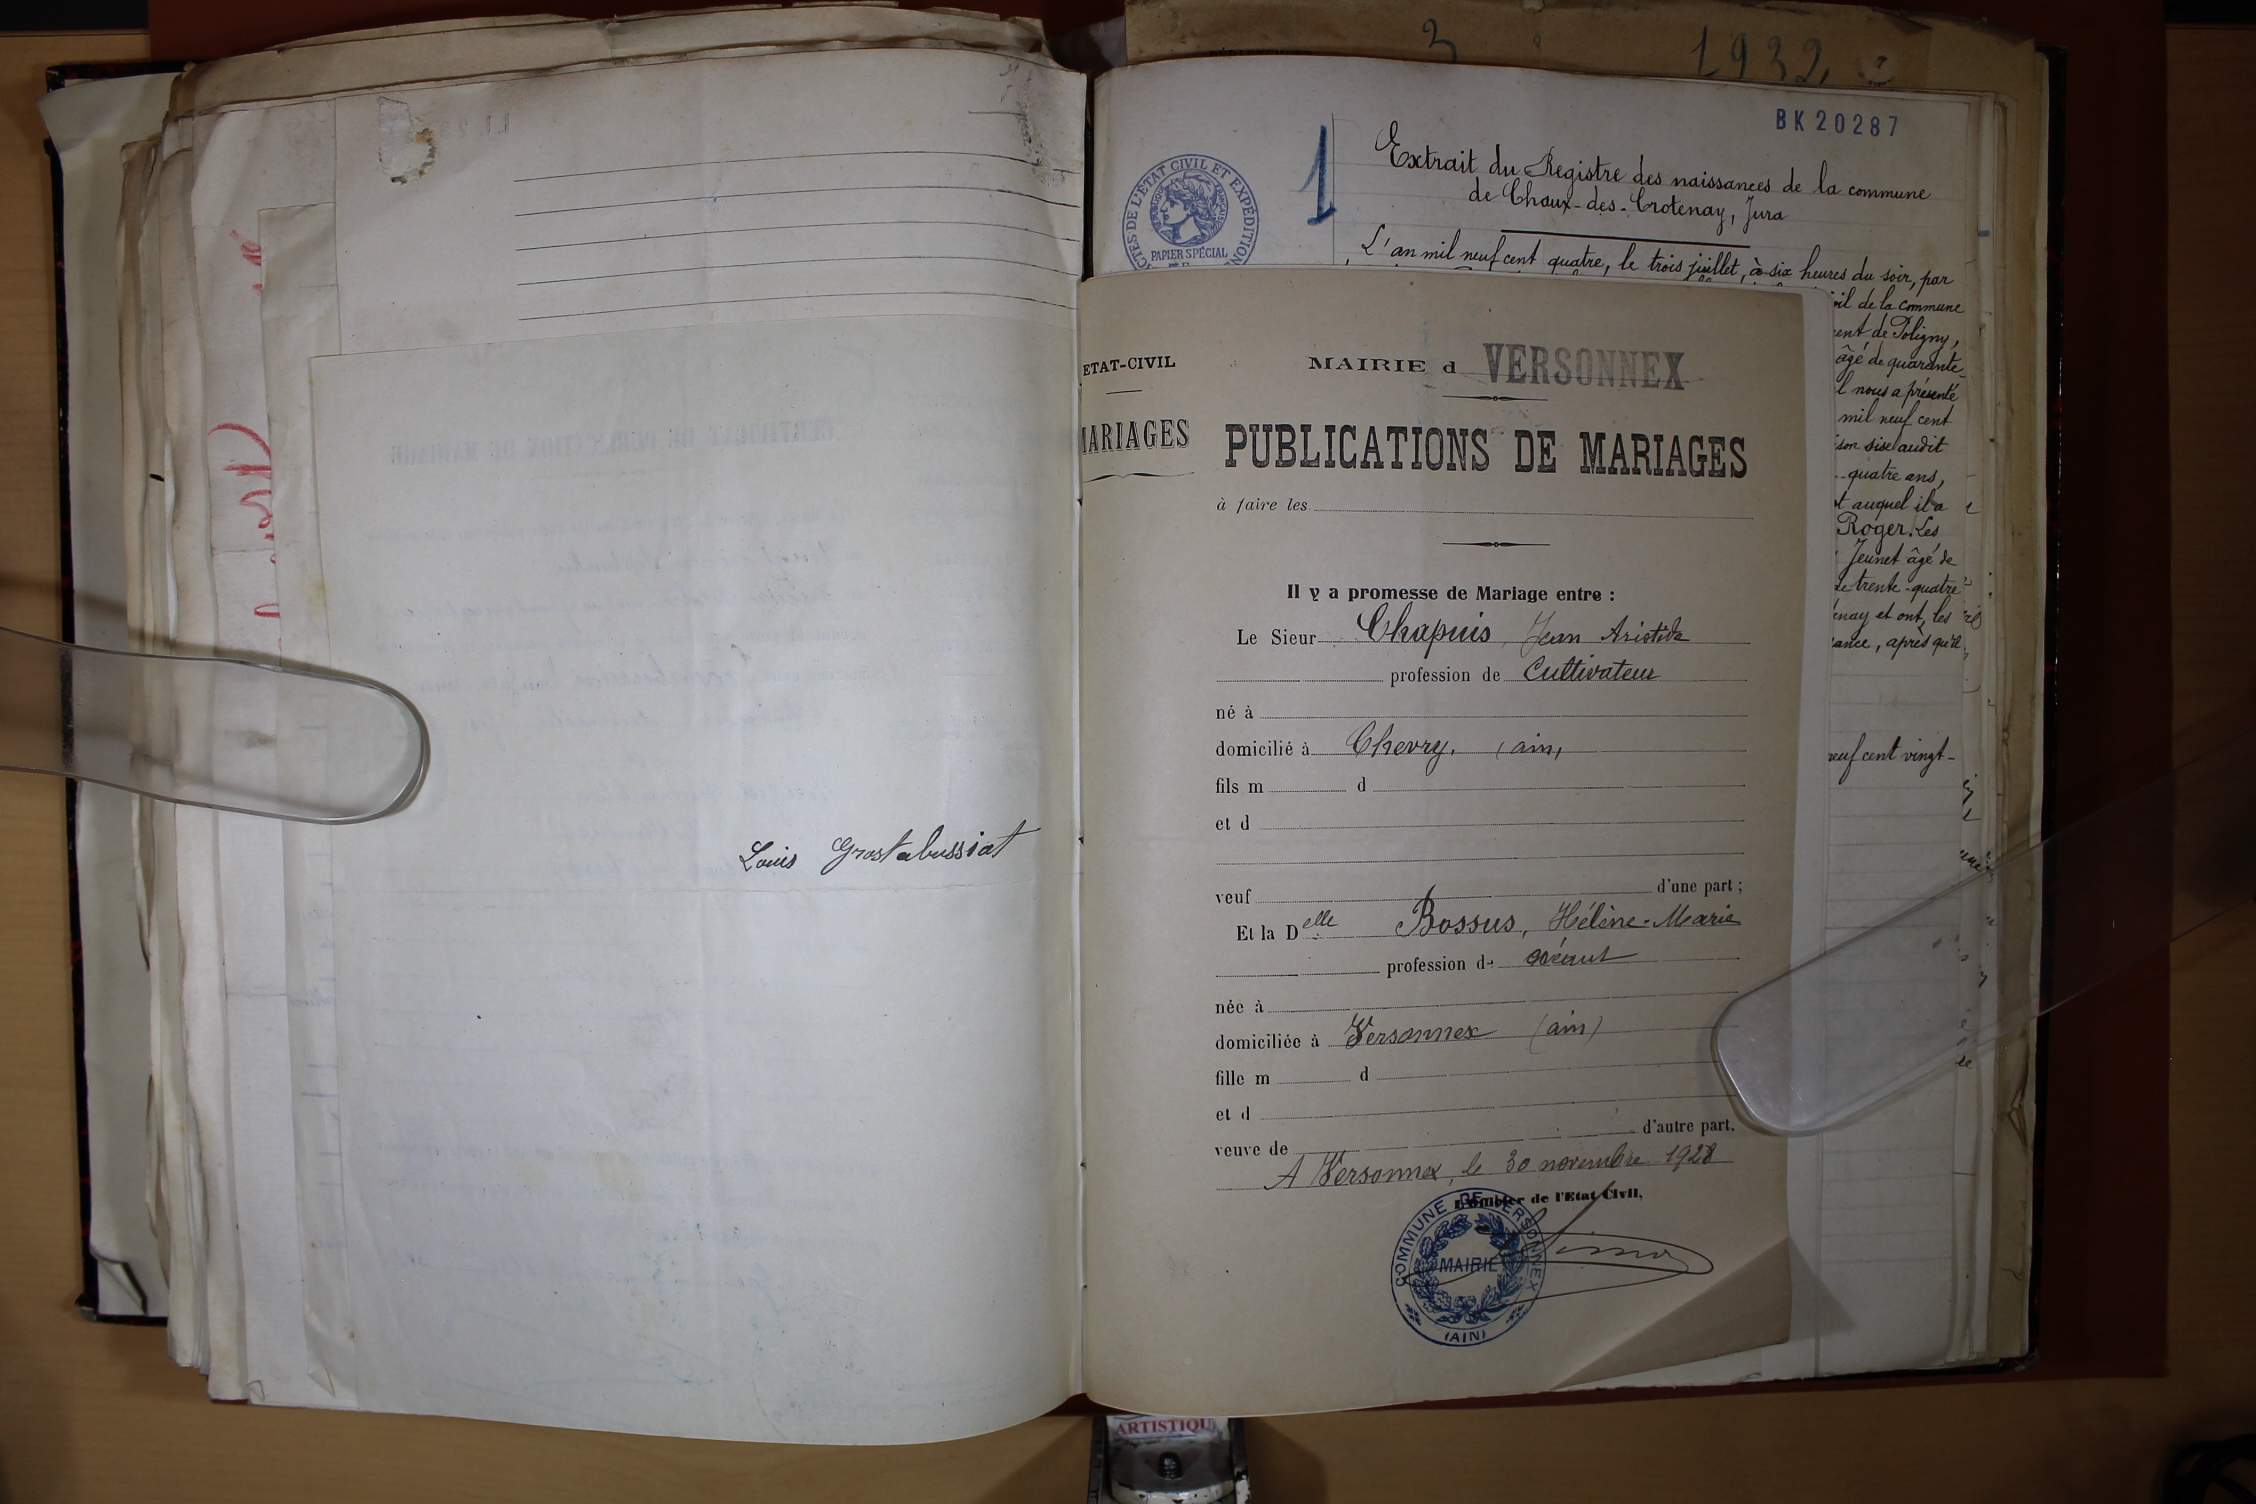 Louis Grostabussiat
3 1932
BK 20287
1
ACTES DE L'ÉTAT CIVIL ET EXPÉDITION
PAPIER SPÉCIAL
Extrait du Registre des naissances de la commune
de Chaux-des-Crotenay, Jura
L'an mil neuf cent quatre, le trois juillet, à six heures du soir, par
de la commune
de Poligny,
âgé de quarante-
nous a présenté
mil neuf cent
sise audit
quatre ans,
auquel il a
Roger. Les
Jeunet âgé de
de trente-quatre
et ont, les
après qu'il
neuf cent vingt-
ETAT-CIVIL
MARIAGES
MAIRIE d VERSONNEX
PUBLICATIONS DE MARIAGES
à faire les
Il y a promesse de Mariage entre :
Le Sieur Chapuis, Jean Aristide
profession de Cultivateur
né à
domicilié à Chevry. (ain)
fils m d
et d
veuf d'une part ;
Et la Delle Bossus, Hélène-Marie
profession de
née à
domiciliée à Versonnex (ain)
fille m d
et d
veuve de d'autre part.
A Versonnex, le 30 novembre 1928
L'Officier de l'Etat Civil,
COMMUNE DE VERSONNEX
MAIRIE
(AIN)
ARTISTIQU